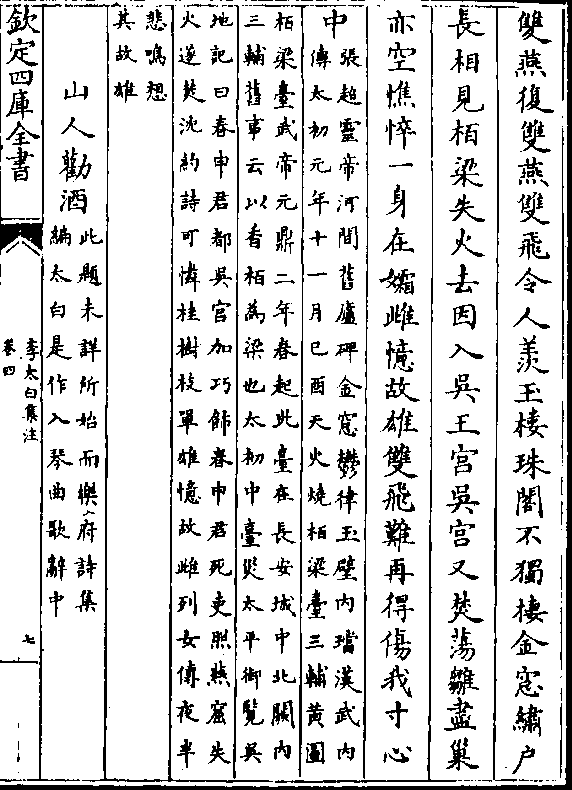 雙燕復雙燕雙飛令人羨玉樓珠閣不獨棲金窓繡户
長相見栢梁失火去因入吳王宮吳宮又焚蕩雛盡巢
亦空憔悴一身在孀雌憶故雄雙飛難再得傷我寸心
中
張超靈帝河間舊廬碑金窓鬱律玉璧内璫漢武内
傳太初元年十一月己酉天火燒栢梁臺三輔黄圖
栢梁臺武帝元鼎二年春起此臺在長安城中北闕内
三輔舊事云以香栢為梁也太初中臺災太平御覽吳
地記曰春申君都吳宮加巧飾春申君死吏照燕窟失
火遂焚沈約詩可憐桂樹枝單雄憶故雌列女傳夜半
悲鳴想
其故雄
山人勸酒
此題未詳所始而樂府詩集
編太白是作入琴曲歌辭中
欽定四庫全書
李太白集注
卷四
七